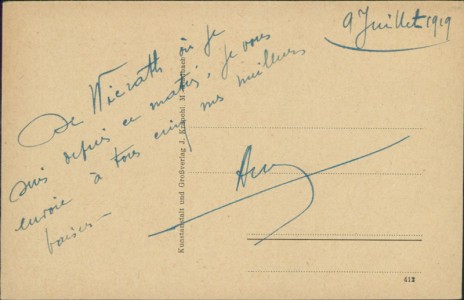 9 Juillet 1919
De Wierath où je
suis depuis ce matin, je vous
envoie à tous cinq mes meilleurs
baisers —
Kunstanstalt und Großverlag J.
412